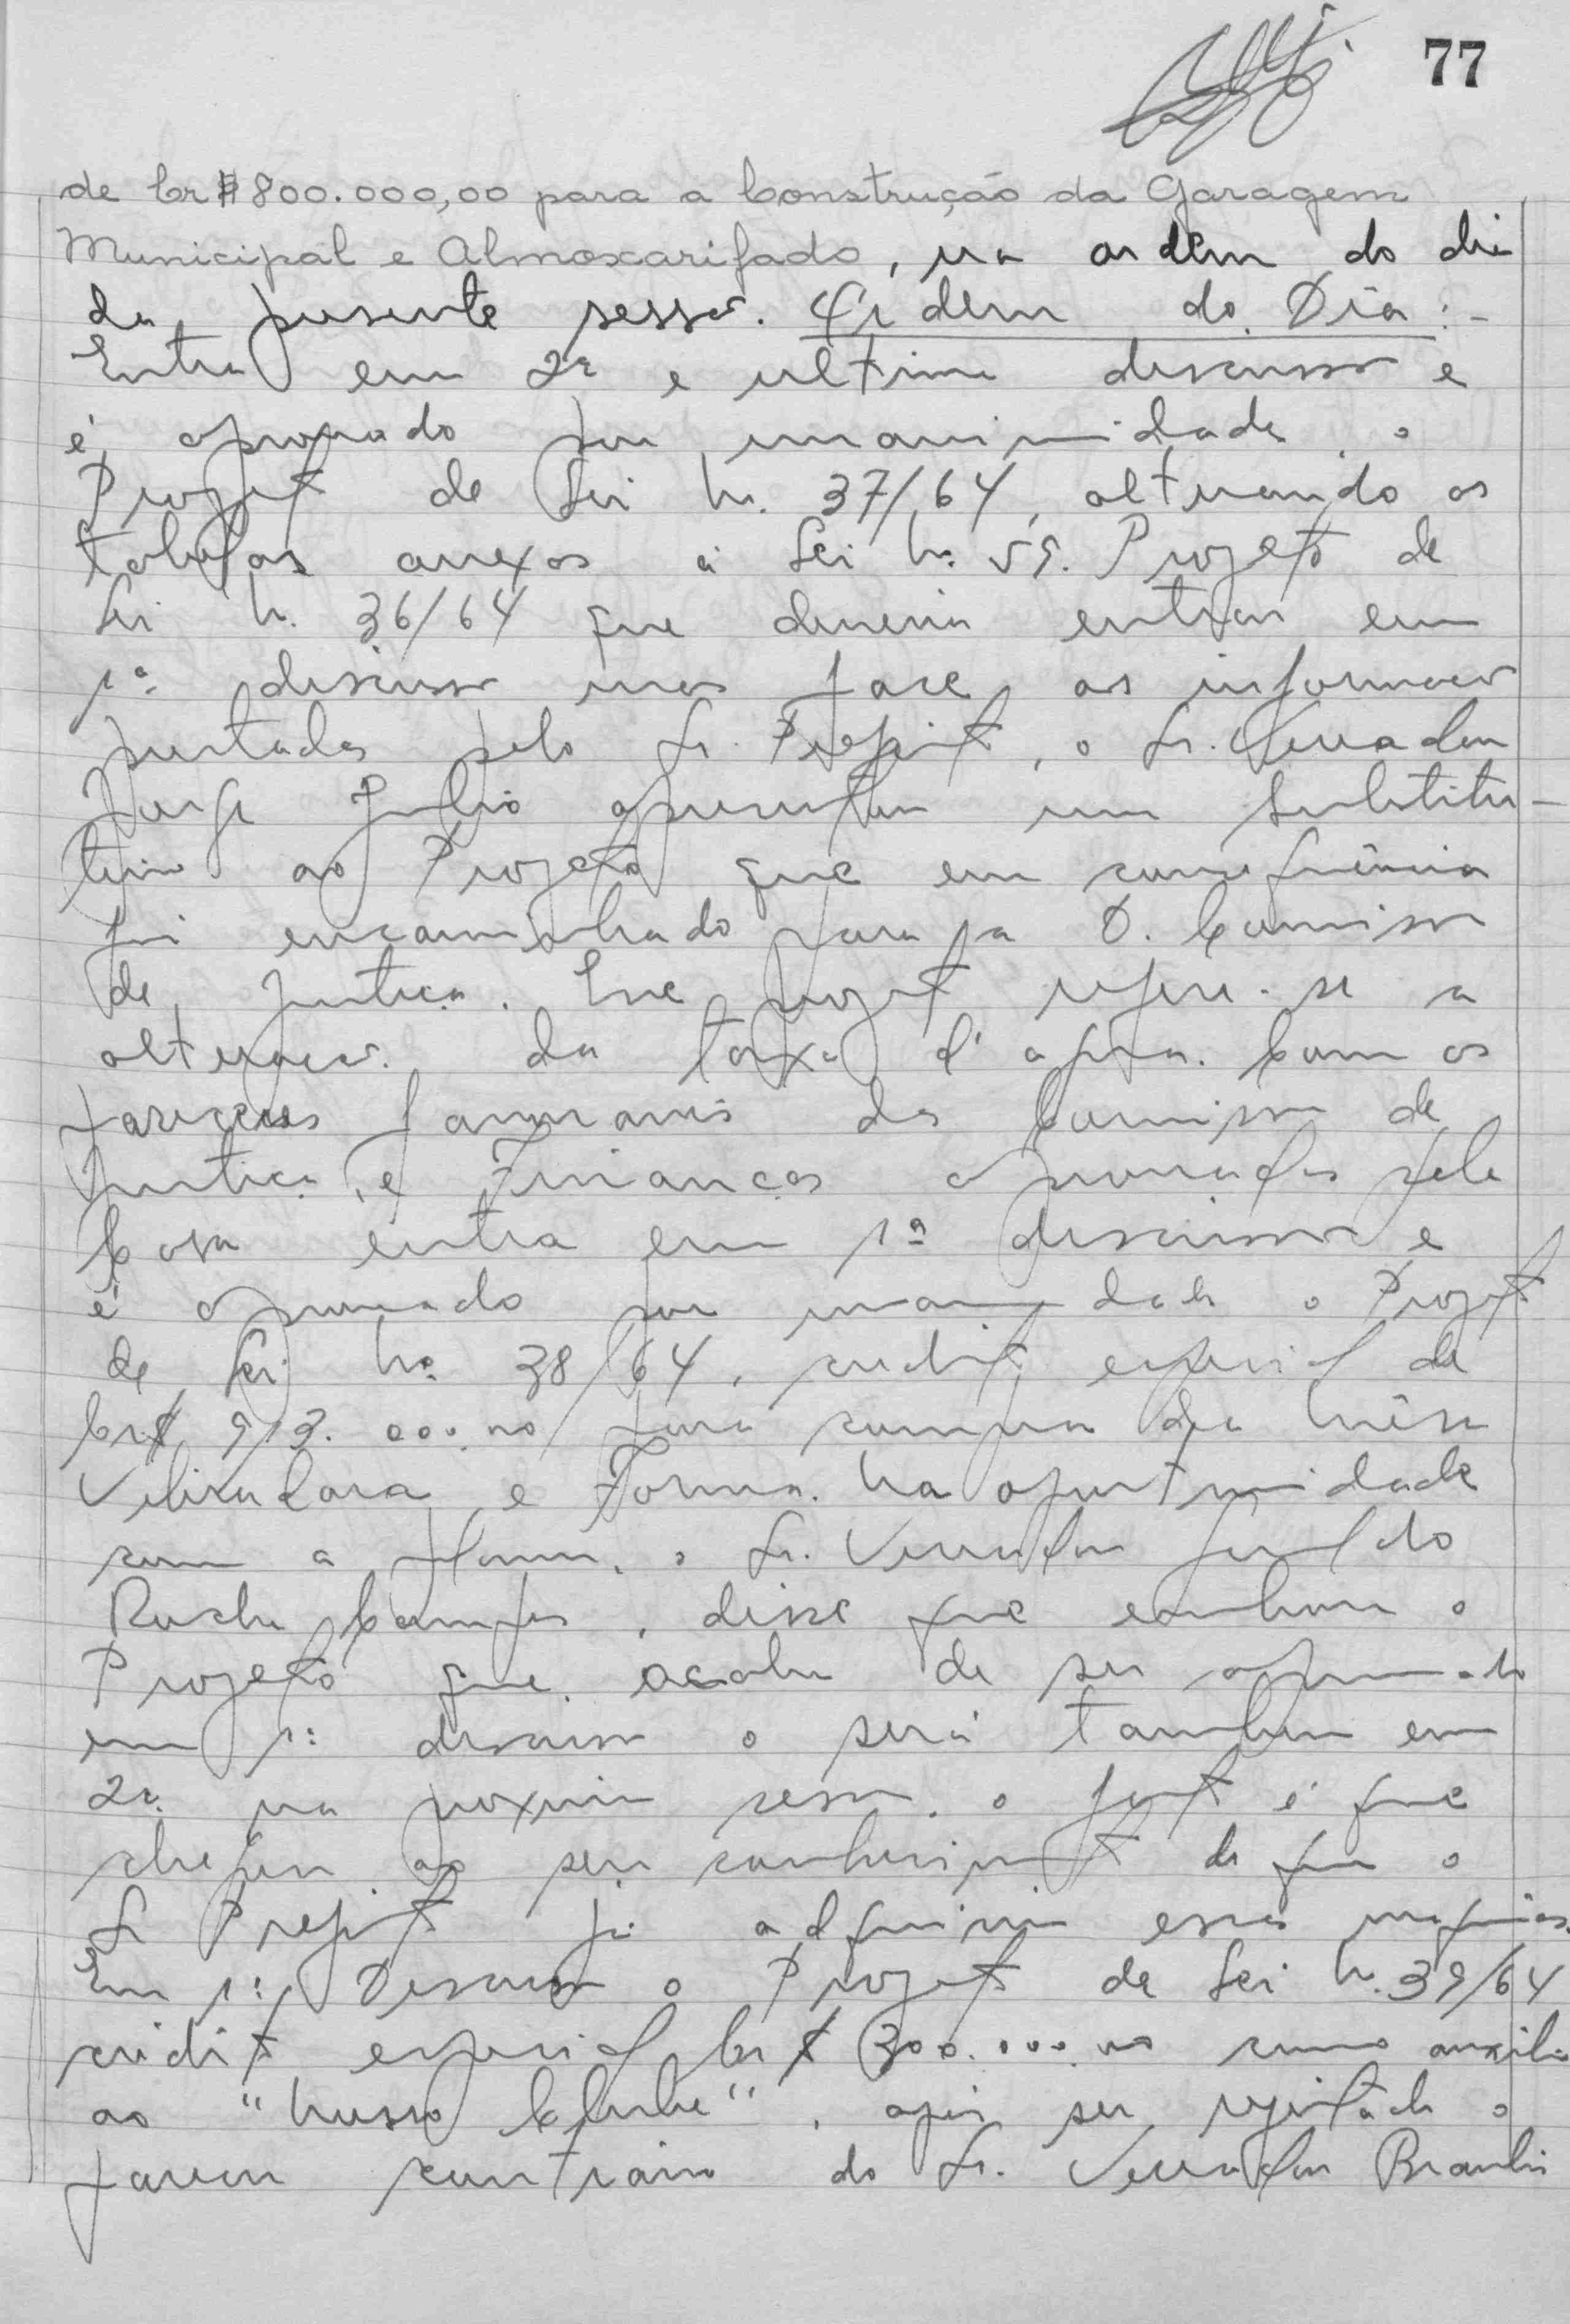 77
de Cr$ 800.000,00 para a Construção da Garagem
Municipal e Almoxarifado, na ordem do dia
da presente sessão. Ordem do Dia:-
Entra em 2ª e ultima discussão e
é aprovado por unanimidade o
Projeto de Lei n. 37/64, alterando as
tabelas anexas à Lei nº 59. Projeto de
Lei n. 36/64 que deveria entrar em
1ª discussão mas face as informações
prestadas pelo Sr. Prefeito, o Sr. Vereador
Jorge Julio apresentou um substitu-
tivo ao Projeto que em consequência
foi encaminhado para a D. Comissão
de Justiça. Esse projeto refere-se a
alteração da taxa d'agua. Com os
pareceres favoraveis da Comissão de
Justiça e Finanças aprovados pela
Casa entra em 1ª discussão e
é aprovado por unanimidade o Projeto
de Lei nº 38/64, credito especial de
Cr$ 913.000,00 para compra de
e Torno. Na oportunidade
com a palavra, o Sr. Vereador Geraldo
Rocha Campos, disse que embora o
Projeto que acaba de ser aprovado
em 1ª discussão o será tambem em
2ª na proxima sessão, o fato é que
chegou ao seu conhecimento de que o
Sr Prefeito já adquiriu essas maquinas.
Em 1ª Discussão o Projeto de Lei n. 39/64
credito especial Cr$ 300.000,00 como auxilio
ao "Nosso Clube", após ser rejeitado o
parecer contrario do Sr. Vereador Braulio